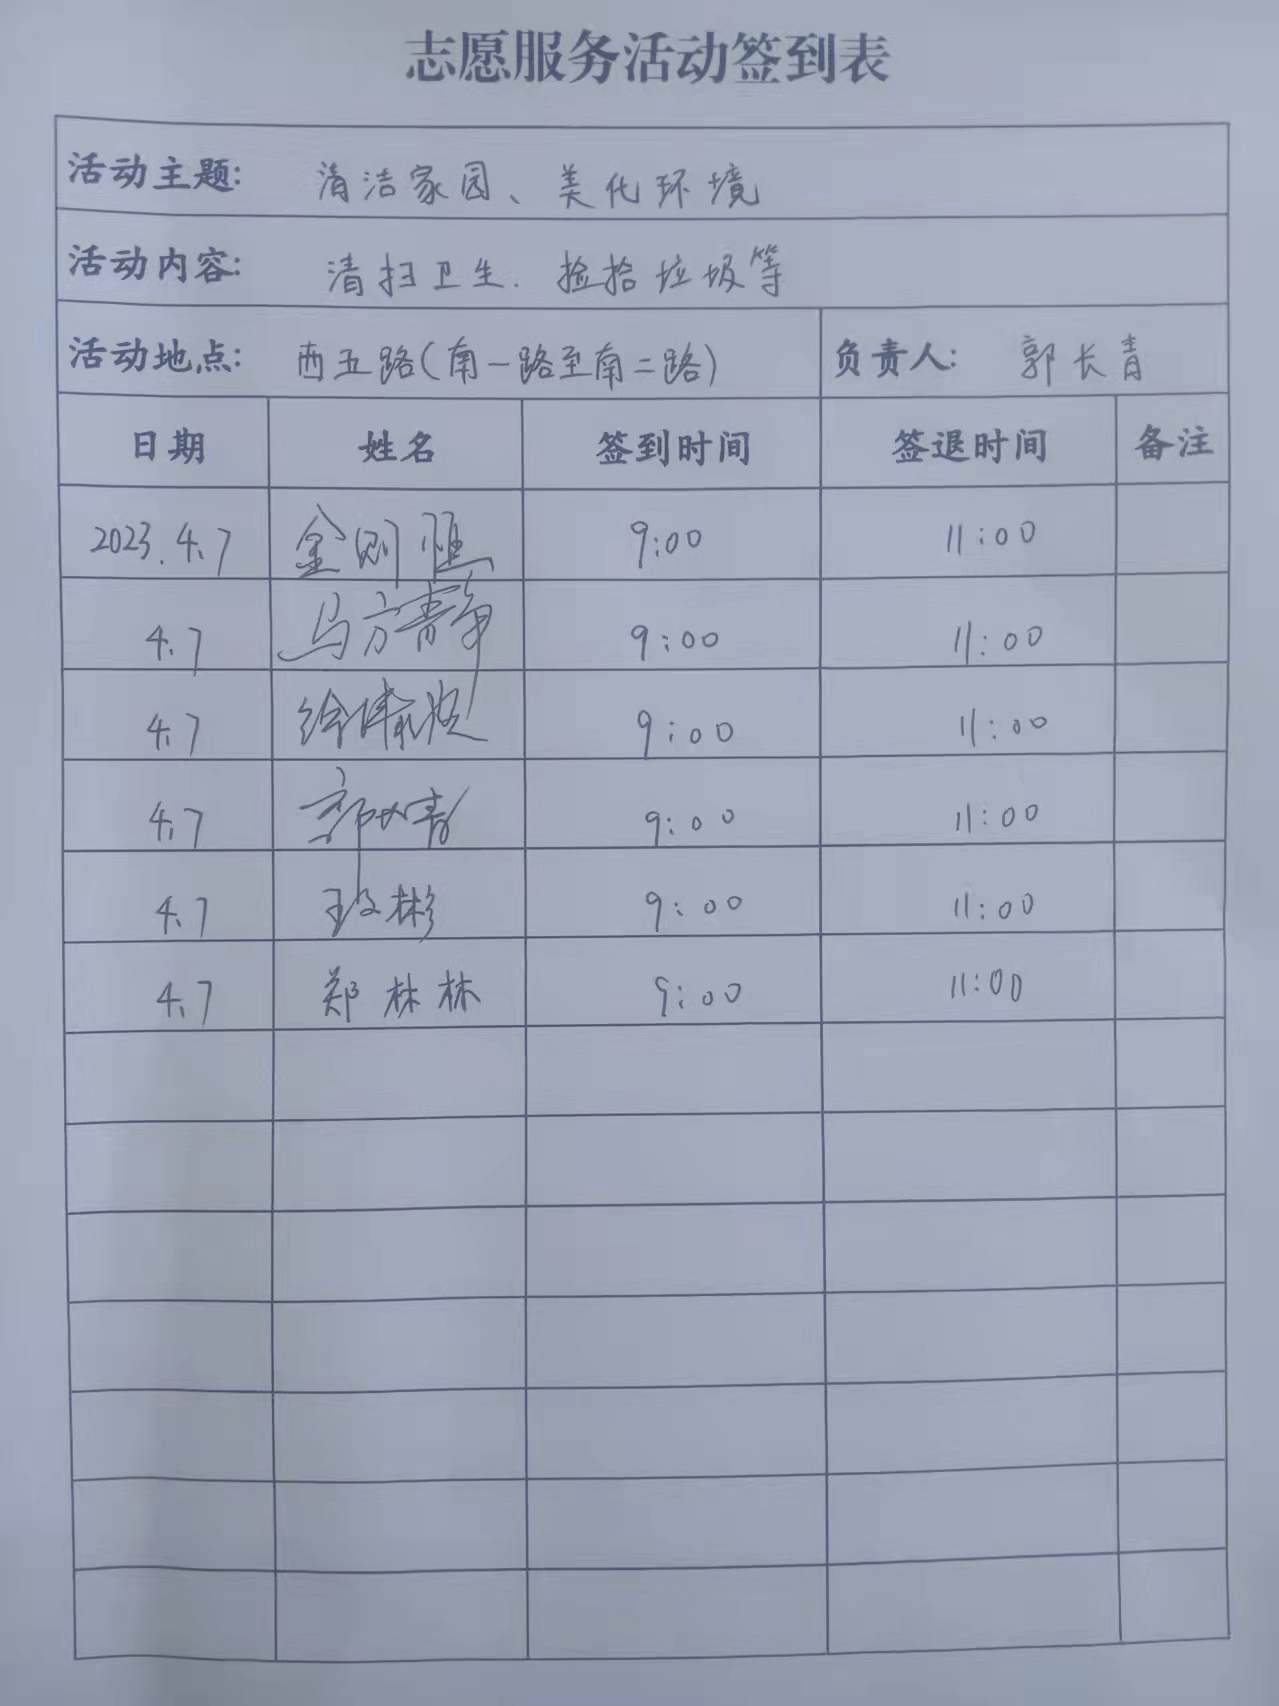 志愿服务活动签到表
活动主题: 清洁家园、美化环境
活动内容: 清扫卫生.捡拾垃圾等
活动地点: 西五路(南一路至南二路) 负责人: 郭长青
日期 姓名 签到时间 签退时间 备注
2023.4.7 金刚恒 9:00 11:00
4.7 马方静 9:00 11:00
4.7 9:00 11:00
4.7 郭长青 9:00 11:00
4.7 王文彬 9:00 11:00
4.7 郑林林 9:00 11:00